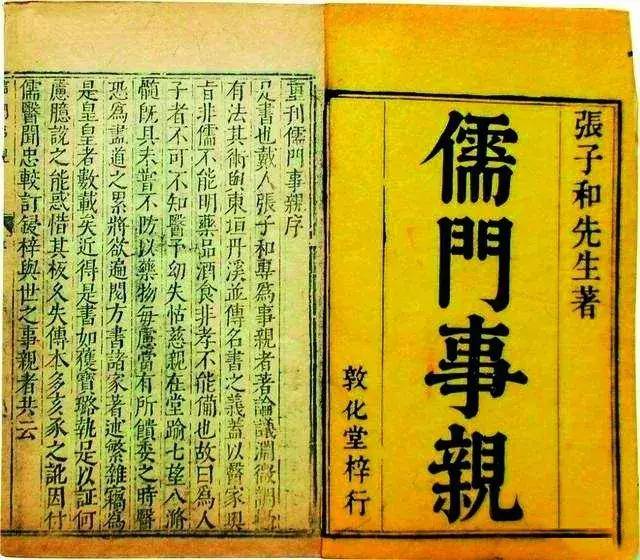 張子和先生著
儒門事親
敦化堂梓行
重刊儒門事親序
是書也戴人張子和專爲事親者著論議淵微調
有法其術與東垣丹溪並傳名書之義蓋以醫家奥
旨非儒不能明藥品酒食非孝不能備也故曰爲人
子者不可不知醫予幼失怙慈親在堂踰七望八滫
髓旣具未嘗不防以藥物每慮當有所饋委之時醫
恐爲盡道之累將欲遍閱方書諸家著述繁雜竊爲
是皇皇者數載矣近得是書如獲寶璐執足以証何
慮臆說之能惑惜其板久失傳本多亥豕之訛因付
儒醫聞忠較訂鋟梓與世之事親者共云